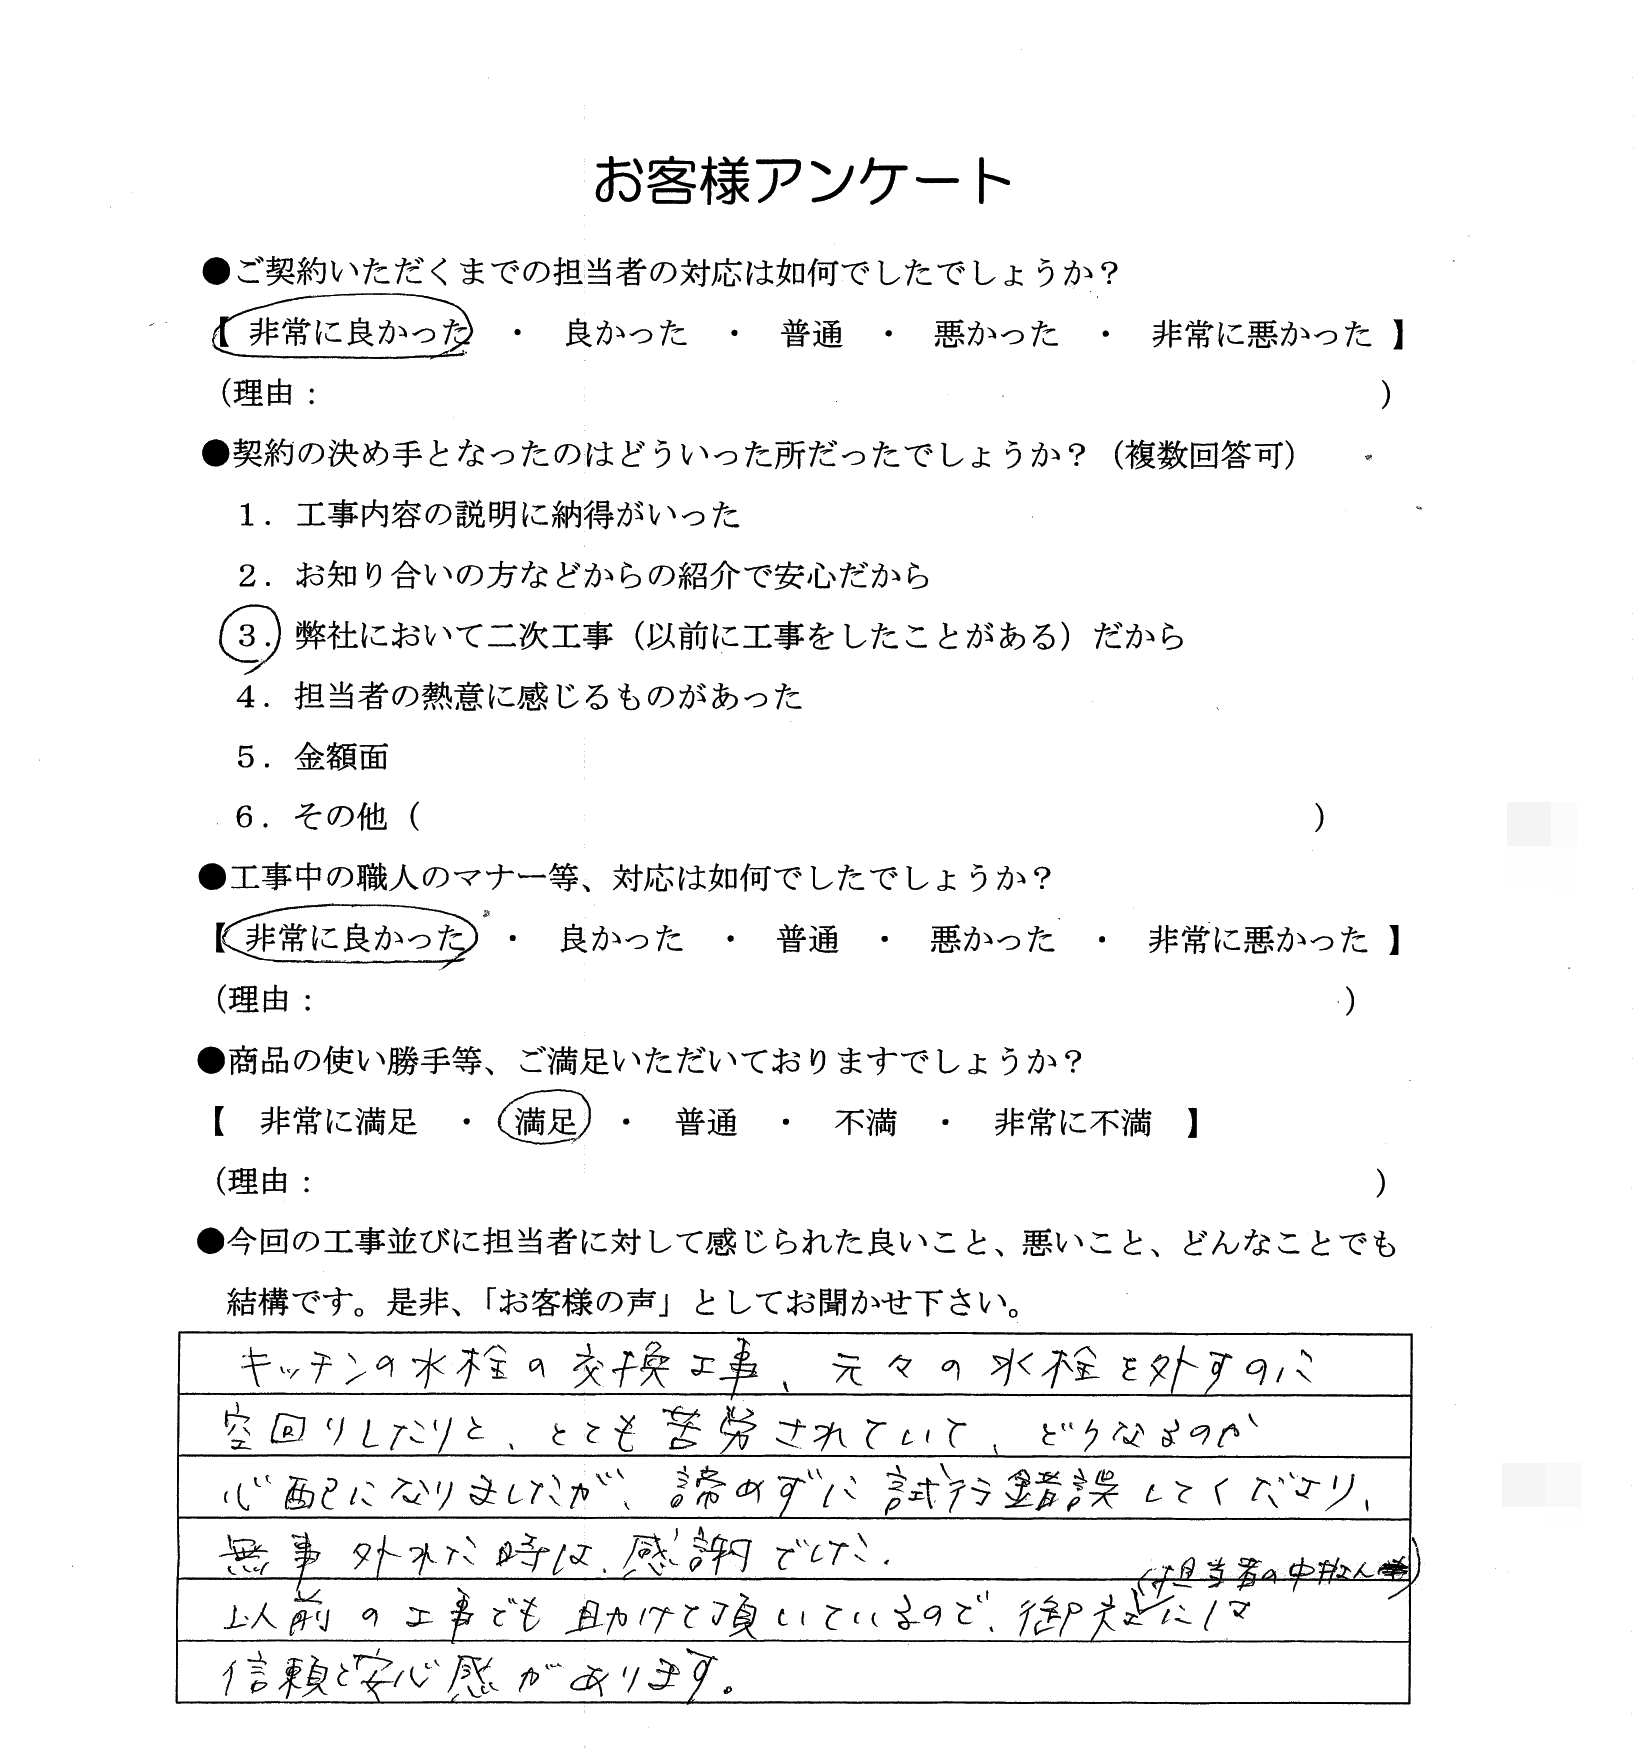 お客様アンケート
●ご契約いただくまでの担当者の対応は如何でしたでしょうか？
【 非常に良かった ・ 良かった ・ 普通 ・ 悪かった ・ 非常に悪かった 】
（理由： ）
●契約の決め手となったのはどういった所だったでしょうか？（複数回答可）
１．工事内容の説明に納得がいった
２．お知り合いの方などからの紹介で安心だから
３．弊社において二次工事（以前に工事をしたことがある）だから
４．担当者の熱意に感じるものがあった
５．金額面
６．その他（ ）
●工事中の職人のマナー等、対応は如何でしたでしょうか？
【 非常に良かった ・ 良かった ・ 普通 ・ 悪かった ・ 非常に悪かった 】
（理由： ）
●商品の使い勝手等、ご満足いただいておりますでしょうか？
【 非常に満足 ・ 満足 ・ 普通 ・ 不満 ・ 非常に不満 】
（理由： ）
●今回の工事並びに担当者に対して感じられた良いこと、悪いこと、どんなことでも
結構です。是非、「お客様の声」としてお聞かせ下さい。
キッチンの水栓の交換工事、元々の水栓を外すのに
空回りしたりと、とても苦労されていて、どうなるのか
心配になりましたが、諦めずに試行錯誤してくださり、
無事外れた時は、感謝でした.
（担当者の中村さん）
以前の工事でも助けて頂いているので、御社には
信頼と安心感があります。